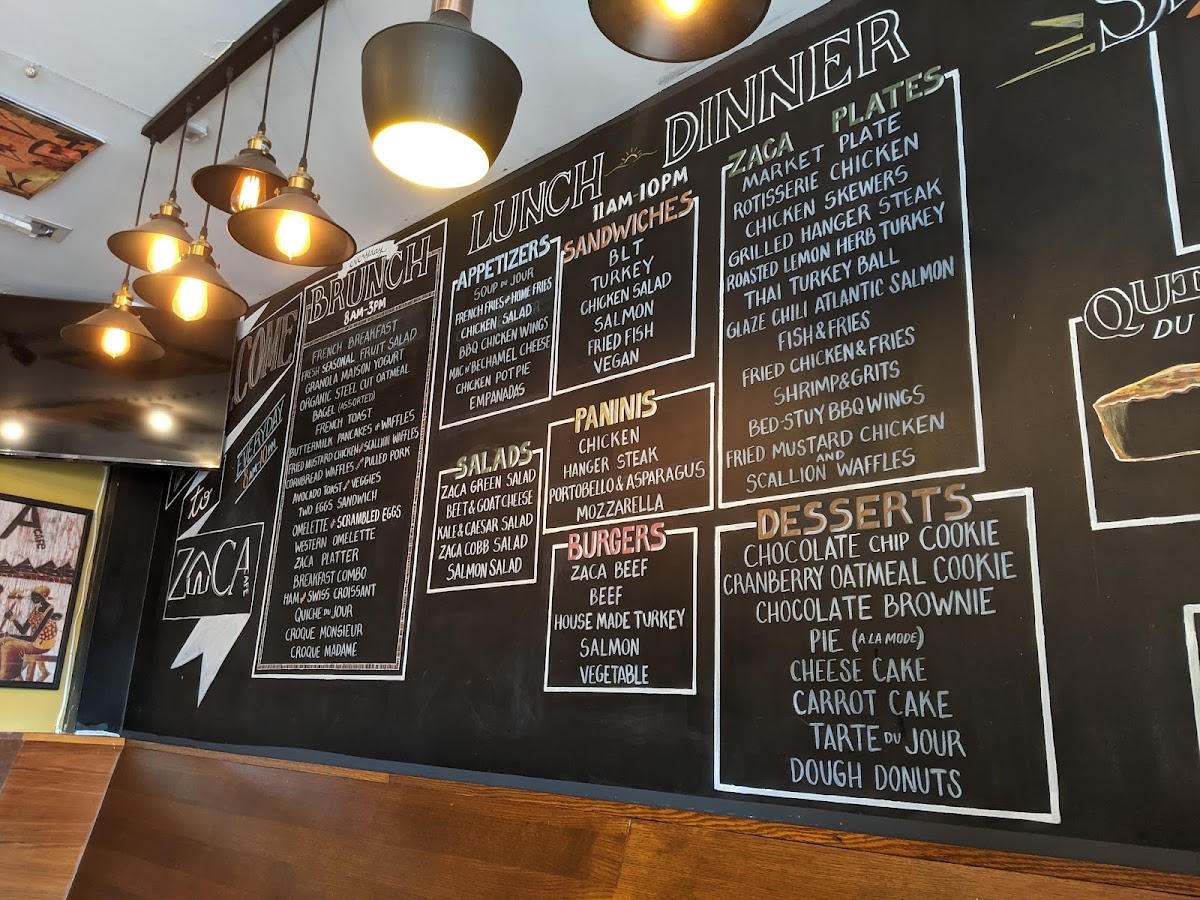 COME
EVERYDAY
to
ZACA
CAFE
BRUNCH
8AM-3PM
FRENCH BREAKFAST
FRESH SEASONAL FRUIT SALAD
GRANOLA MAISON YOGURT
ORGANIC STEEL CUT OATMEAL
BAGEL (ASSORTED)
FRENCH TOAST
BUTTERMILK PANCAKES or WAFFLES
FRIED MUSTARD CHICKEN/SCALLION WAFFLES
CORNBREAD WAFFLES with PULLED PORK
AVOCADO TOAST with VEGGIES
TWO EGGS SANDWICH
OMELETTE or SCRAMBLED EGGS
WESTERN OMELETTE
ZACA PLATTER
BREAKFAST COMBO
HAM and SWISS CROISSANT
QUICHE DU JOUR
CROQUE MONSIEUR
CROQUE MADAME
LUNCH DINNER
11AM-10PM
APPETIZERS
SOUP DU JOUR
FRENCH FRIES and HOME FRIES
CHICKEN SALAD
BBQ CHICKEN WINGS
MAC N' BECHAMEL CHEESE
CHICKEN POT PIE
EMPANADAS
SANDWICHES
BLT
TURKEY
CHICKEN SALAD
SALMON
FRIED FISH
VEGAN
SALADS
ZACA GREEN SALAD
BEET & GOAT CHEESE
KALE & CAESAR SALAD
ZACA COBB SALAD
SALMON SALAD
PANINIS
CHICKEN
HANGER STEAK
PORTOBELLO & ASPARAGUS
MOZZARELLA
BURGERS
ZACA BEEF
BEEF
HOUSE MADE TURKEY
SALMON
VEGETABLE
ZACA PLATES
MARKET PLATE
ROTISSERIE CHICKEN
CHICKEN SKEWERS
GRILLED HANGER STEAK
ROASTED LEMON HERB TURKEY
THAI TURKEY BALL
GLAZE CHILI ATLANTIC SALMON
FISH & FRIES
FRIED CHICKEN & FRIES
SHRIMP & GRITS
BED-STUY BBQ WINGS
FRIED MUSTARD CHICKEN
AND
SCALLION WAFFLES
DESSERTS
CHOCOLATE CHIP COOKIE
CRANBERRY OATMEAL COOKIE
CHOCOLATE BROWNIE
PIE (A LA MODE)
CHEESE CAKE
CARROT CAKE
TARTE DU JOUR
DOUGH DONUTS
QUI
DU